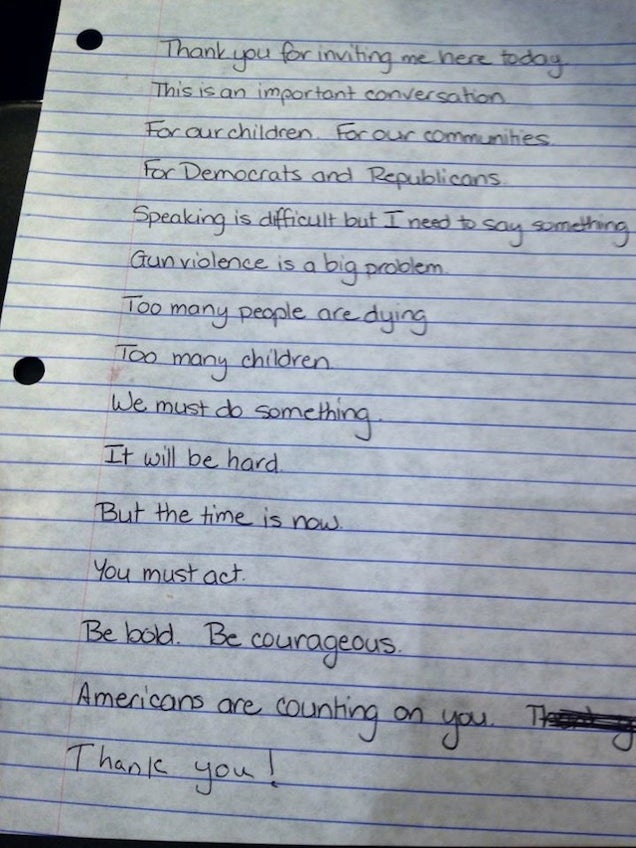 Thank you for inviting me here today
This is an important conversation
For our children. For our communities.
For Democrats and Republicans.
Speaking is difficult but I need to say something
Gun violence is a big problem.
Too many people are dying
Too many children.
We must do something.
It will be hard.
But the time is now.
You must act.
Be bold. Be courageous.
Americans are counting on you.
Thank you!